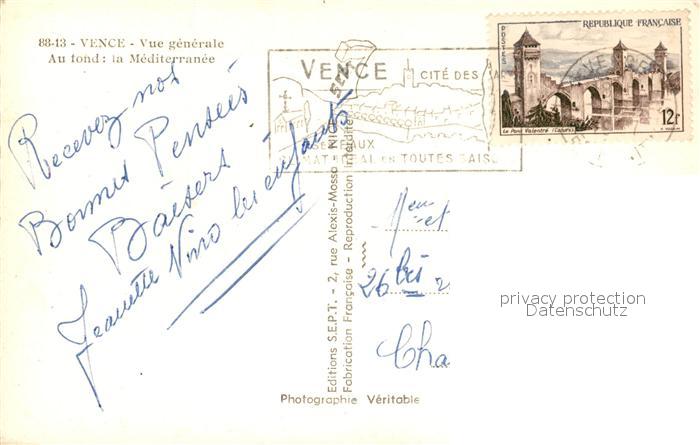 88-13 - VENCE - Vue générale
Au fond : la Méditerranée
Recevez nos
Bonnes Pensées
Baisers
Jeanette Nino les enfants
VENCE
CITÉ DES
EN TOUTES SAIS
REPUBLIQUE FRANÇAISE
POSTES
12F
Le Pont Valentré (Cahors)
Editions S.E.P.T. - 2, rue Alexis-Mossa - NICE
Fabrication Française - Reproduction interdite
et
26 bis
Cha
privacy protection
Datenschutz
Photographie Véritable